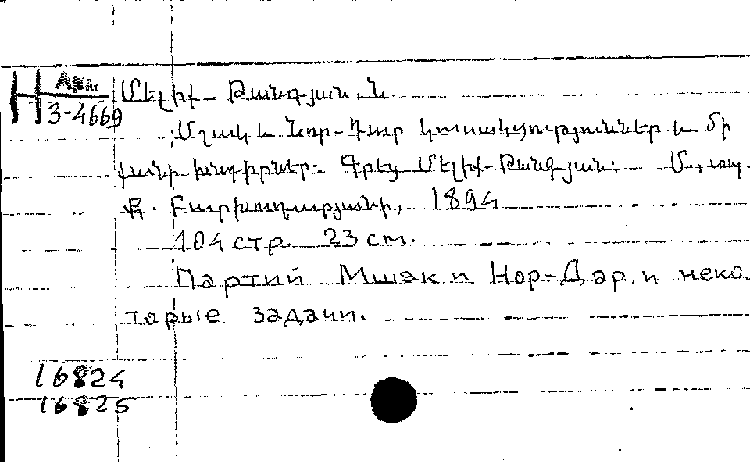 H Арм
3-4669
Մելիք-Թանգյան Ն.
Մշակ և Նոր-Դար կուսակցություններ և մի
քանի խնդիրներ. Գրեց Մելիք-Թանգյան:
Բարխուդարյանի, 1894
104 стр. 23 cm.
Партий Мшак и Нор-Дар. и неко
торые задачи.
16824
16825